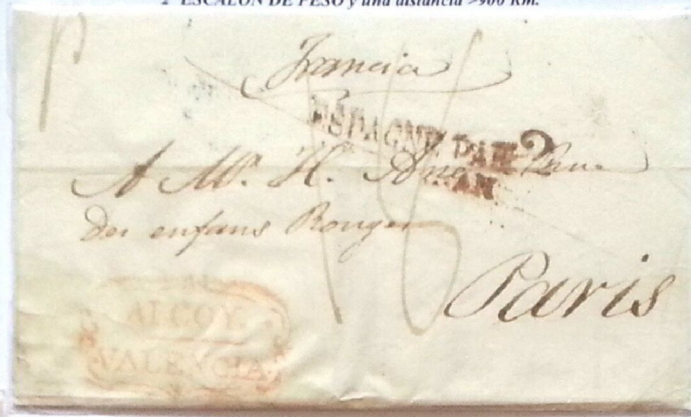 2º ESCALÓN DE PESO y una distancia >900 Km.
Francia
ESPAGNE PAR
A Mr. H. Rue
des enfans Rouges
Paris
ALCOY
VALENCIA